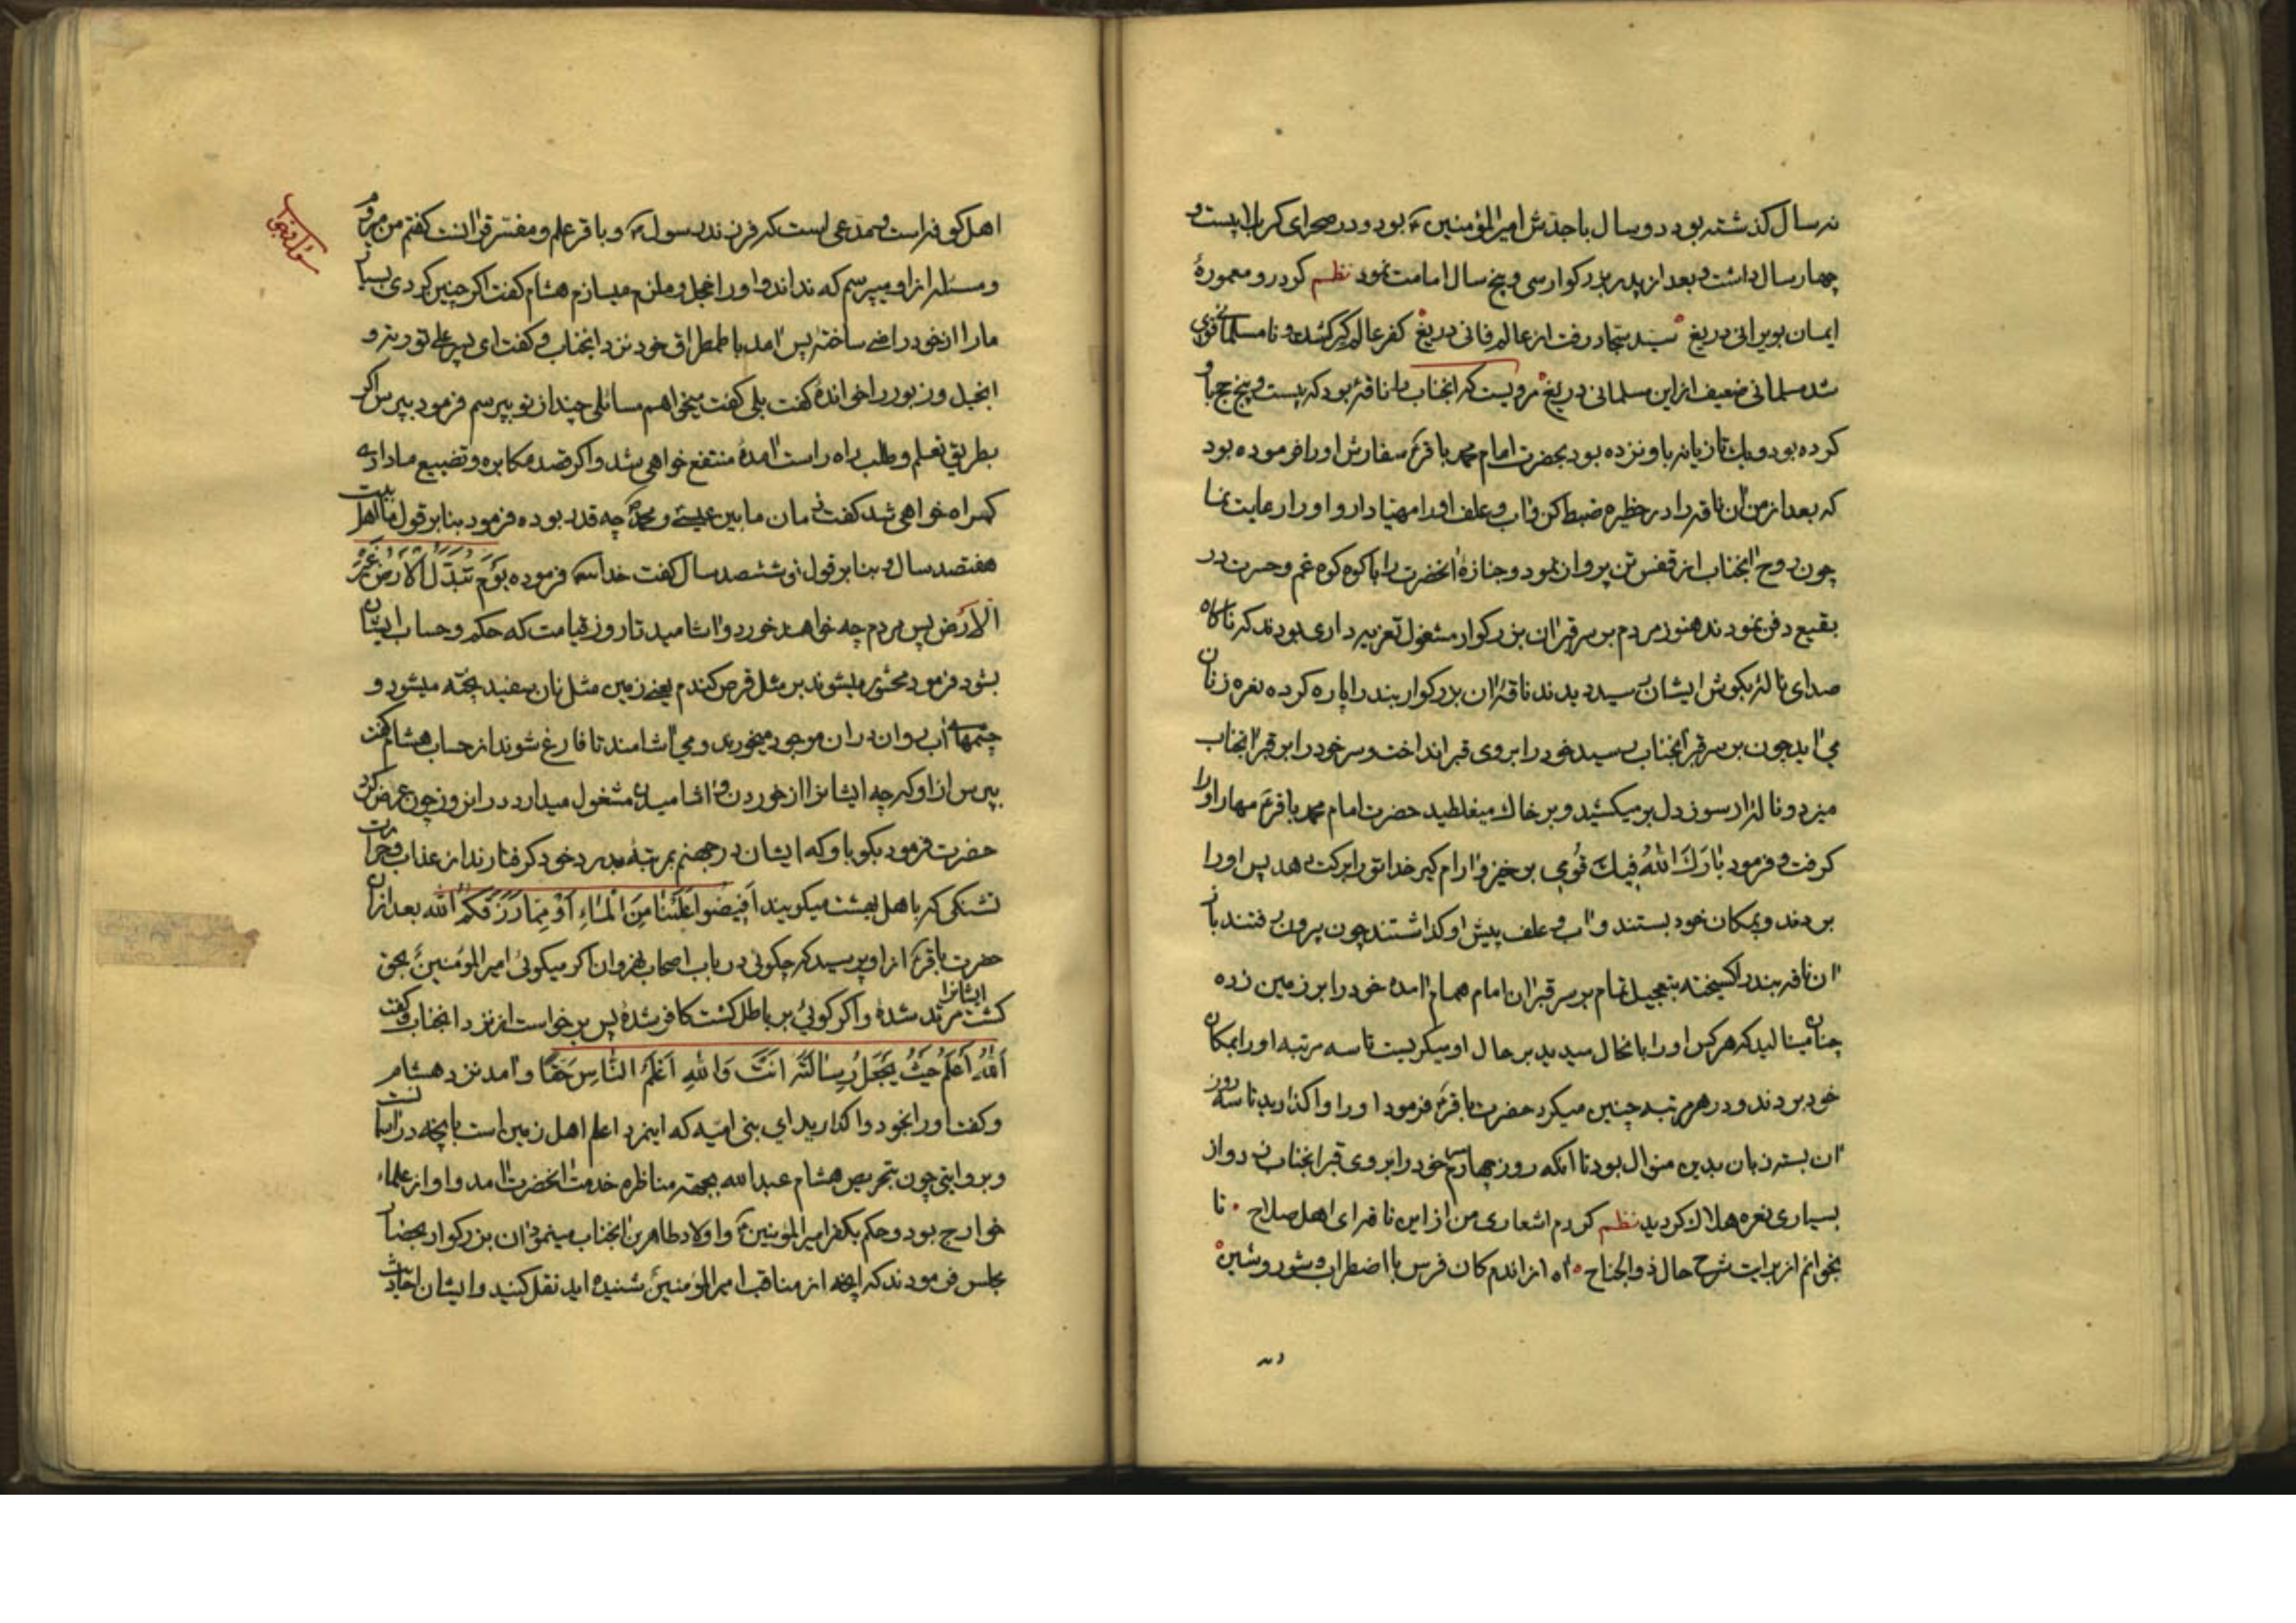 نه سال گذشته بود دو سال با جدش امیرالمؤمنین ع بود و در صحرای کربلا بیست و
چهار سال داشت و بعد از پدر بزرکوار سی و پنج سال امامت نمود نظم کرد رو معمورهٔ
ایمان بویرانی دریغ سید سجاد رفت از عالم فانی دریغ کفر عالم کیر کشت و نامسلمانی قوی
شد مسلمانی ضعیف از این مسلمانی دریغ مرویست که انجناب را ناقهٔ بود که بیست و پنج حج با او
کرده بود و یک تازیانه باو نزده بود بحضرت امام محمد باقر ع سفارش او را فرموده بود
که بعد از من ان ناقه را در حظیره ضبط کن و اب و علف او را مهیا دار و او را رعایت نما
چون روح انجناب از قفس تن پرواز نمود و جنازهٔ انحضرت را با کوه کوه غم و حسرت در
بقیع دفن نمودند هنوز مردم بر سر قبر ان بزرکوار مشغول تعزیه داری بودند که ناکاه
صدای نالهٔ بکوش ایشان رسید دیدند ناقهٔ ان بزرکوار بند را پاره کرده نعره زنان
می اید چون بر سر قبر انجناب رسید خود را بروی قبر انداخت و سر خود را بر قبر انجناب
میزد و ناله از سوز دل بر میکشید و بر خاک میغلطید حضرت امام محمد باقر ع مهار او را
کرفت و فرمود بارَکَ اللهُ فیكَ قُومی بر خیز و ارام کیر خدا تو را برکت دهد پس او را
بردند و بمکان خود بستند و اب و علف پیش او کذاشتند چون بیرون رفتند باز
ان ناقه بند را کسیخته بتعجیل تمام بر سر قبر ان امام همام امده خود را بر زمین زده
چنان مینالید که هر کس او را بانحال میدید بر حال او میکریست تا سه مرتبه او را بمکان
خود بردند و در هر مرتبه چنین میکرد حضرت باقر ع فرمود او را واکذارید تا سه روز
ان بسته زبان بدین منوال بود تا انکه روز چهارم سر خود را بر روی قبر انجناب زد و از
بسیاری نعره هلاک کردید نظم کردم اشعاری من از این ناقه ای اهل صلاح تا
بخوانم از برایت شرح حال ذوالجناح اه از اندم کان فرس با اضطراب و شور و شین
اهل کوفه است و مدعی است که فرزند رسول ص و باقر علم و مفسر قرانست کفتم من میروم
و مسئله از او میپرسم که نداند و او را خجل و ملزم میسازم هشام کفت اکر چنین کردی بسیار
ما را از خود راضی ساختهٔ پس امد با طمطراق خود نزد انجناب و کفت ای پسر علی توریة و
انجیل و زبور را خواندهٔ کفت بلی کفت میخواهم مسائلی چند از تو بپرسم فرمود بپرس اکر
بطریق تعلم و طلب راه راست امدهٔ منتفع خواهی شد و اکر قصد مکابره و تضییع ما داری
کمراه خواهی شد کفت زمان مابین عیسی و محمد ص چه قدر بوده فرمود بنا بر قول ما اهل بیت
هفتصد سال و بنا بر قول تو ششصد سال کفت خدا فرموده یَوْمَ تُبَدَّلُ الْاَرْضُ غَیْرَ
الْاَرْضِ پس مردم چه خواهند خورد و اشامید تا روز قیامت که حکم و حساب ایشان
بشود فرمود محشور میشوند بر مثل قرص کندم یعنی زمین مثل نان سفید پخته میشود و
چشمهای آب روان در ان موجود میخورند و می اشامند تا فارغ شوند از حساب هشام کفت
بپرس از او که چه ایشانرا از خوردن و اشامیدن مشغول میدارد در انروز چون عرض کرد
حضرت فرمود بکو باو که ایشان در جهنم بمرتبهٔ بدرد خود کرفتارند از عذاب و حرارت
تشنکی که باهل بهشت میکویند اَفیضُوا عَلَیْنا مِنَ الْماءِ اَوْ مِمّا رَزَقَکُمُ الله بعد از ان
حضرت باقر ع از او پرسید که چکوئی در باب اصحاب نهروان اکر میکوئی امیرالمؤمنین ع بحق
ایشانرا کشت مرتد شدهٔ و اکر کوئی بر باطل کشت کافر شدهٔ پس برخواست از نزد انجناب و کفت
اَللهُ اَعْلَمُ حَیْثُ یَجْعَلُ رِسالَتَهُ اَنْتَ وَاللهِ اَعْلَمُ النّاسِ حَقّا و امد نزد هشام
و کفت او را بخود واکذارید ای بنی امیه که اینمرد اعلم اهل زمین است بانچه در اسمانست
و بروایتی چون بتحریص هشام عبدالله بجهة مناظره خدمت انحضرت امد و او از علماء
خوارج بود و حکم بکفر امیرالمؤمنین ع و اولاد طاهرین انجناب مینمود ان بزرکوار بحضار
مجلس فرمودند که انچه از مناقب امیرالمؤمنین ع شنیده اید نقل کنید و ایشان احادیث